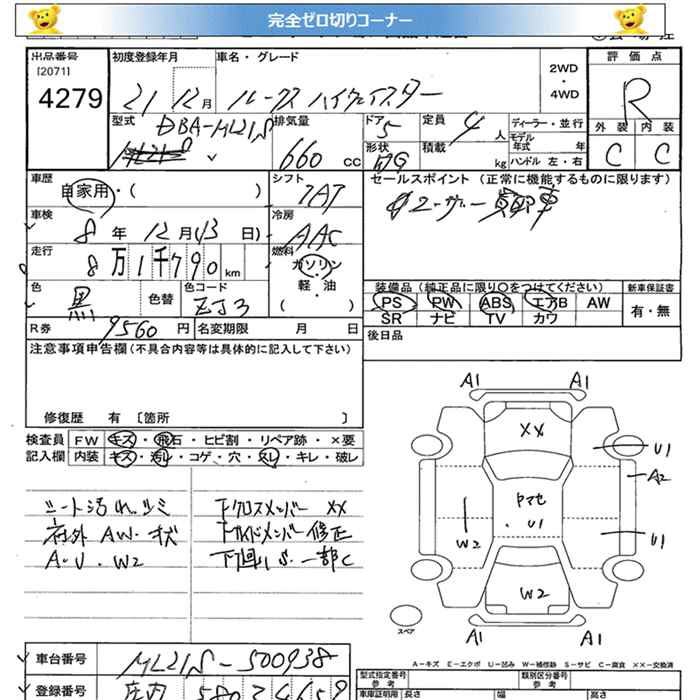 完全ゼロ切りコーナー
出品番号 初度登録年月 車名・グレード 評価点
[2071]
4279
21 12月 ルークス ハイウェイスター
2WD
・
4WD
R
外装 内装
C C
型式 DBA-ML21S 排気量 660 cc ドア 5 定員 4 人 ディーラー・並行
形状 積載 kg モデル年式 年
ハンドル 左・右
車歴 自家用・( ) シフト IAT セールスポイント (正常に機能するものに限ります)
車検 8年 12月(13日) 冷房 AAC
走行 8万1千790 km 燃料 ガソリン
軽・油
( )
色 黒 色替 色コード ZJ3
装備品 (純正品に限り〇をつけてください) 新車保証書
PS PW ABS エアB AW 有・無
SR ナビ TV カワ
R券 9560円 名変期限 月 日 後日品
注意事項申告欄 (不具合内容等は具体的に記入して下さい)
修復歴 有 〔箇所 〕
検査員 FW キズ・飛石・ヒビ割・リペア跡・×要
記入欄 内装 キズ・汚レ・コゲ・穴・スレ・キレ・破レ
シート汚れ、シミ
社外 AW・キズ
A・U・W2
下クロスメンバー XX
下サイドメンバー 修正
下廻りS・一部C
A1 A1
XX
U1
A2
U1
W2 U1
W2
A1 A1
スペア
A-キズ E-エクボ U-凹み W-補修跡 S-サビ C-腐食 ××-交換済
車台番号 ML21S-500938
型式指定番号 類別区分番号
参考 参考
登録番号 庄内 580
車庫証明用 長さ 幅 高さ